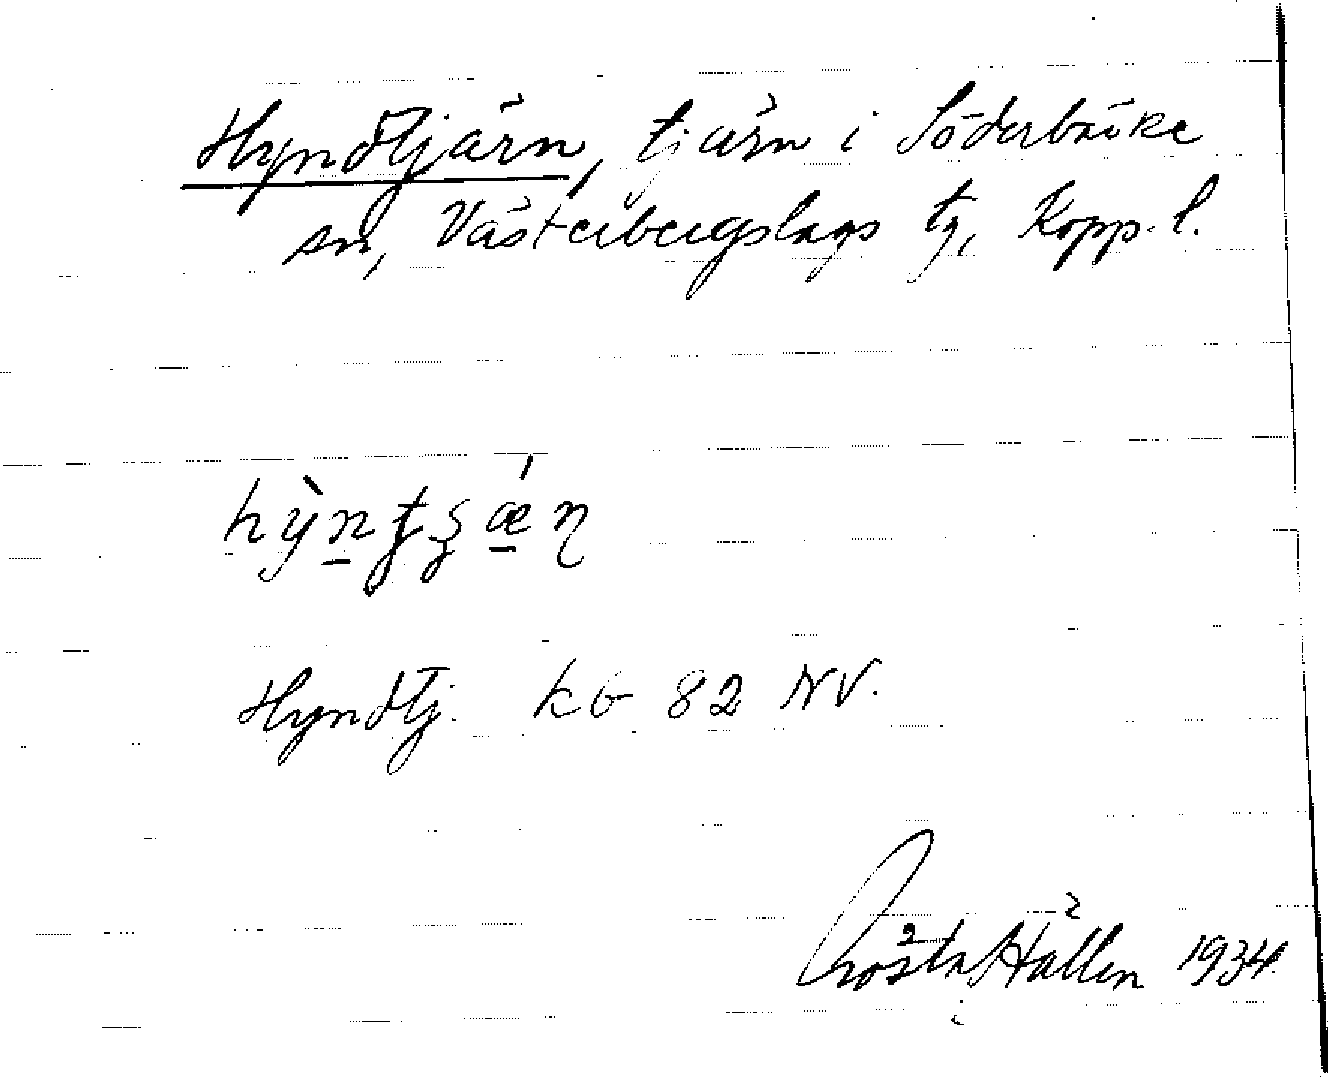 Hyndtjärn, tjärn i Söderbärke
sn, Västerbergslags tg, Kopp. l.
hỳnʈʂǽɳ
Hyndtj. kb 82 NV.
Gösta Hållen 1934.